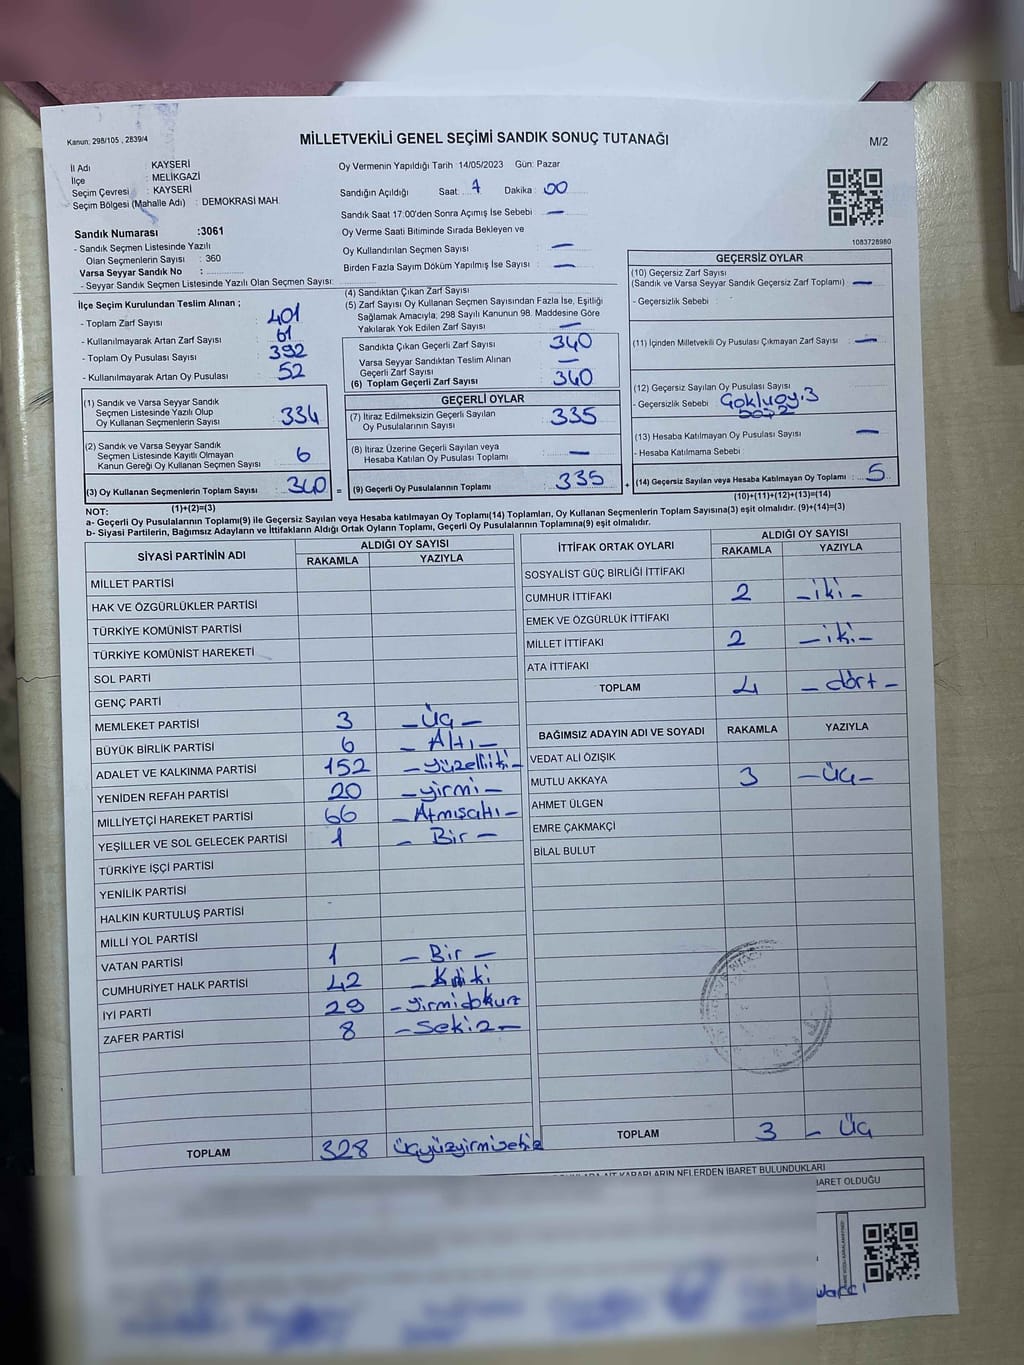 Kanun: 298/105 , 2839/4
MİLLETVEKİLİ GENEL SEÇİMİ SANDIK SONUÇ TUTANAĞI
M/2
İl Adı : KAYSERİ
İlçe : MELİKGAZİ
Seçim Çevresi : KAYSERİ
Seçim Bölgesi (Mahalle Adı) : DEMOKRASİ MAH.
Sandık Numarası :3061
- Sandık Seçmen Listesinde Yazılı
Olan Seçmenlerin Sayısı : 360
Varsa Seyyar Sandık No :
- Seyyar Sandık Seçmen Listesinde Yazılı Olan Seçmen Sayısı:
Oy Vermenin Yapıldığı Tarih :14/05/2023 Gün: Pazar
Sandığın Açıldığı Saat: 7 Dakika : 00
Sandık Saat 17:00'den Sonra Açımış İse Sebebi —
Oy Verme Saati Bitiminde Sırada Bekleyen ve
Oy Kullandırılan Seçmen Sayısı —
Birden Fazla Sayım Döküm Yapılmış İse Sayısı —
1083728980
İlçe Seçim Kurulundan Teslim Alınan ;
- Toplam Zarf Sayısı : 401
- Kullanılmayarak Artan Zarf Sayısı : 61
- Toplam Oy Pusulası Sayısı : 392
- Kullanılmayarak Artan Oy Pusulası : 52
(1) Sandık ve Varsa Seyyar Sandık
Seçmen Listesinde Yazılı Olup
Oy Kullanan Seçmenlerin Sayısı : 334
(2) Sandık ve Varsa Seyyar Sandık
Seçmen Listesinde Kayıtlı Olmayan
Kanun Gereği Oy Kullanan Seçmen Sayısı : 6
(3) Oy Kullanan Seçmenlerin Toplam Sayısı : 340
(1)+(2)=(3)
(4) Sandıktan Çıkan Zarf Sayısı
(5) Zarf Sayısı Oy Kullanan Seçmen Sayısından Fazla İse, Eşitliği
Sağlamak Amacıyla; 298 Sayılı Kanunun 98. Maddesine Göre
Yakılarak Yok Edilen Zarf Sayısı —
Sandıkta Çıkan Geçerli Zarf Sayısı : 340
Varsa Seyyar Sandıktan Teslim Alınan
Geçerli Zarf Sayısı —
(6) Toplam Geçerli Zarf Sayısı : 340
GEÇERLİ OYLAR
(7) İtiraz Edilmeksizin Geçerli Sayılan
Oy Pusulalarının Sayısı : 335
(8) İtiraz Üzerine Geçerli Sayılan veya
Hesaba Katılan Oy Pusulası Toplamı : —
= (9) Geçerli Oy Pusulalarının Toplamı : 335
GEÇERSİZ OYLAR
(10) Geçersiz Zarf Sayısı
(Sandık ve Varsa Seyyar Sandık Geçersiz Zarf Toplamı) : —
- Geçersizlik Sebebi :
(11) İçinden Milletvekili Oy Pusulası Çıkmayan Zarf Sayısı : —
(12) Geçersiz Sayılan Oy Pusulası Sayısı
- Geçersizlik Sebebi :
(13) Hesaba Katılmayan Oy Pusulası Sayısı : —
- Hesaba Katılmama Sebebi :
+ (14) Geçersiz Sayılan veya Hesaba Katılmayan Oy Toplamı : 5
(10)+(11)+(12)+(13)=(14)
NOT:
a- Geçerli Oy Pusulalarının Toplamı(9) ile Geçersiz Sayılan veya Hesaba katılmayan Oy Toplamı(14) Toplamları, Oy Kullanan Seçmenlerin Toplam Sayısına(3) eşit olmalıdır. (9)+(14)=(3)
b- Siyasi Partilerin, Bağımsız Adayların ve İttifakların Aldığı Ortak Oyların Toplamı, Geçerli Oy Pusulalarının Toplamına(9) eşit olmalıdır.
SİYASİ PARTİNİN ADI ALDIĞI OY SAYISI
RAKAMLA YAZIYLA
MİLLET PARTİSİ
HAK VE ÖZGÜRLÜKLER PARTİSİ
TÜRKİYE KOMÜNİST PARTİSİ
TÜRKİYE KOMÜNİST HAREKETİ
SOL PARTİ
GENÇ PARTİ
MEMLEKET PARTİSİ 3 – Üç –
BÜYÜK BİRLİK PARTİSİ 6 – Altı –
ADALET VE KALKINMA PARTİSİ 152 – yüzelliiki –
YENİDEN REFAH PARTİSİ 20 – yirmi –
MİLLİYETÇİ HAREKET PARTİSİ 66 – Atmışaltı –
YEŞİLLER VE SOL GELECEK PARTİSİ 1 – Bir –
TÜRKİYE İŞÇİ PARTİSİ
YENİLİK PARTİSİ
HALKIN KURTULUŞ PARTİSİ
MİLLİ YOL PARTİSİ
VATAN PARTİSİ 1 – Bir –
CUMHURİYET HALK PARTİSİ 42
İYİ PARTİ 29 – yirmidokuz
ZAFER PARTİSİ 8 – Sekiz –
TOPLAM 328 üçyüzyirmisekiz
İTTİFAK ORTAK OYLARI ALDIĞI OY SAYISI
RAKAMLA YAZIYLA
SOSYALİST GÜÇ BİRLİĞİ İTTİFAKI
CUMHUR İTTİFAKI 2 – iki –
EMEK VE ÖZGÜRLÜK İTTİFAKI
MİLLET İTTİFAKI 2 – iki –
ATA İTTİFAKI
TOPLAM 4 – dört –
BAĞIMSIZ ADAYIN ADI VE SOYADI RAKAMLA YAZIYLA
VEDAT ALİ ÖZIŞIK
MUTLU AKKAYA 3 – üç –
AHMET ÜLGEN
EMRE ÇAKMAKÇI
BİLAL BULUT
TOPLAM 3 – üç
KARARLARIN NELERDEN İBARET BULUNDUKLARI
İBARET OLDUĞU